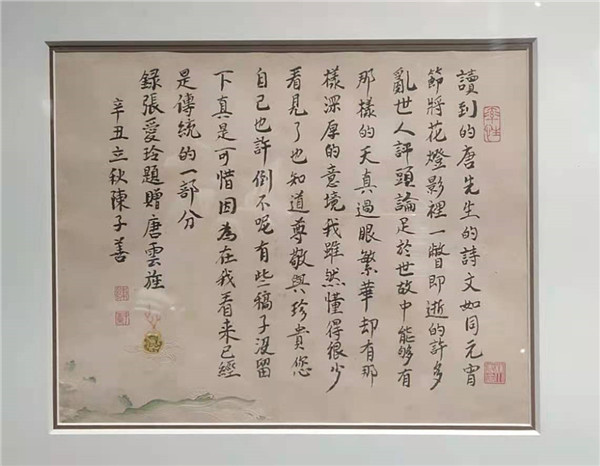 讀到的唐先生的詩文如同元宵
節將花燈影裡一瞥即逝的許多
亂世人評頭論足於世故中能夠有
那樣的天真過眼繁華却有那
樣深厚的意境我雖然懂得很少
看見了也知道尊敬與珍貴您
自己也許倒不呢有些稿子沒留
下真是可惜因為在我看来已經
是傳統的一部分
錄張愛玲題贈唐雲旌
辛丑立秋陳子善